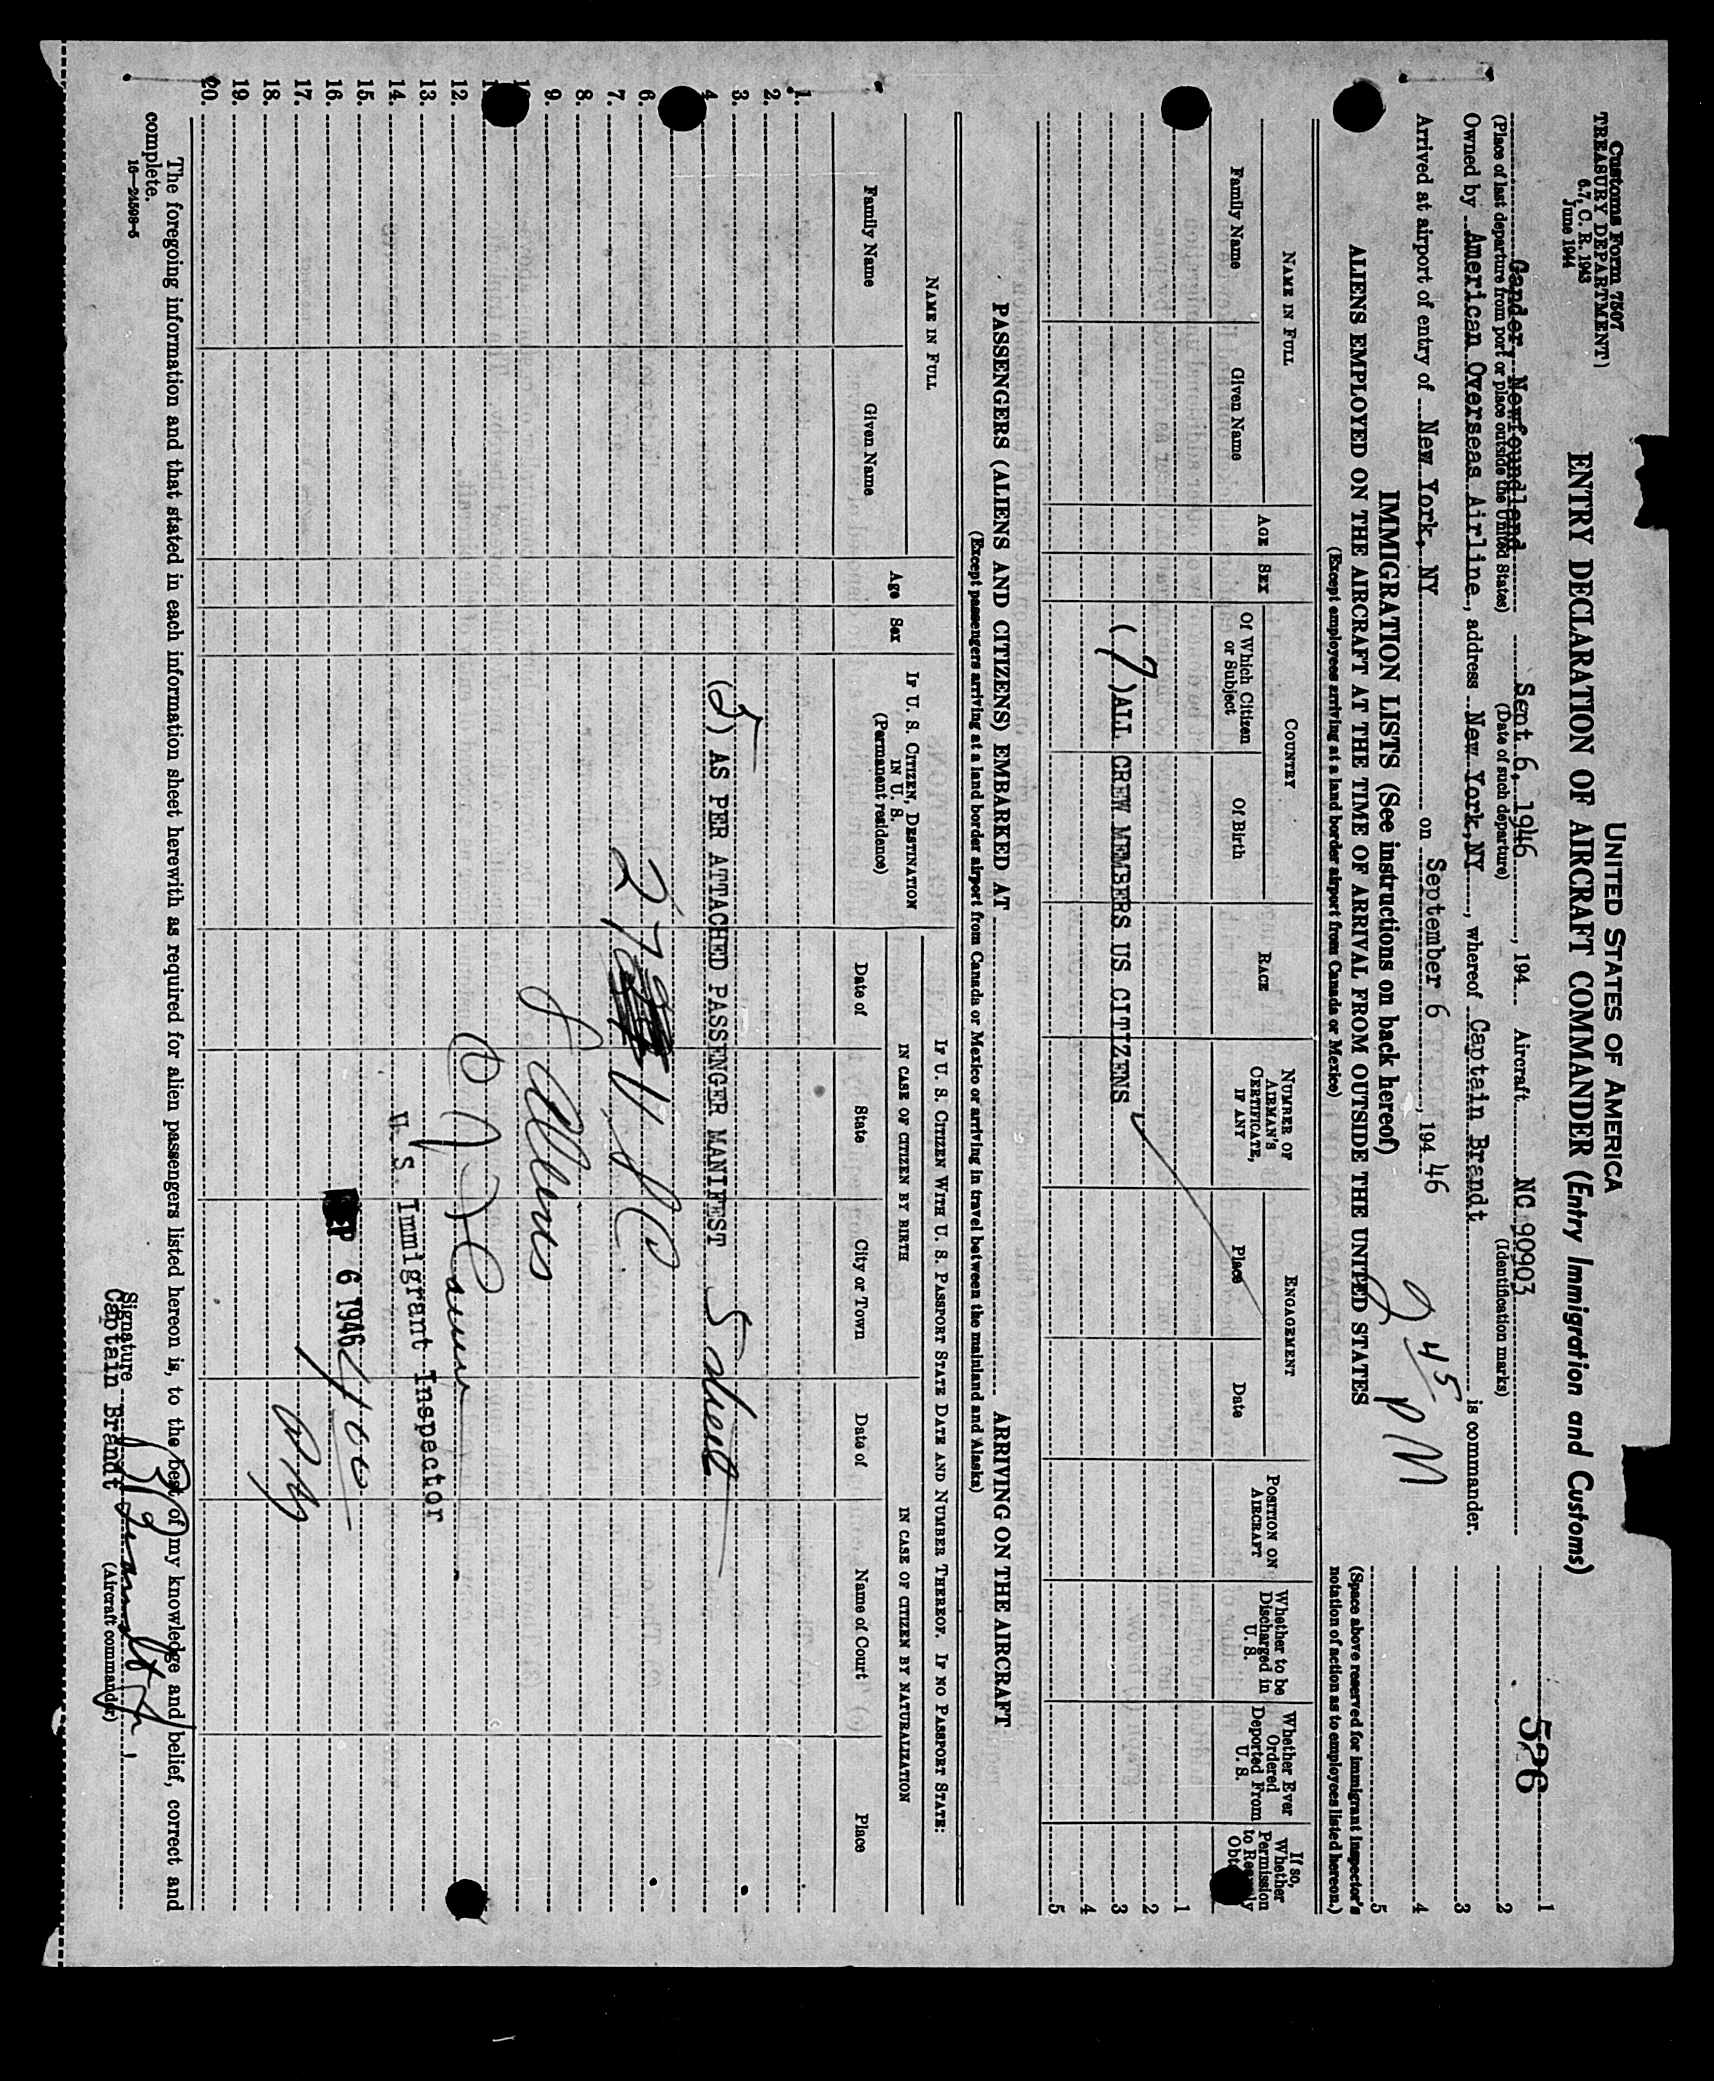 Customs Form 7507
TREASURY DEPARTMENT
6.7, C. R. 1943
June 1944
UNITED STATES OF AMERICA
ENTRY DECLARATION OF AIRCRAFT COMMANDER (Entry Immigration and Customs)
586
Gander, Newfoundland Sept 6, 1946, 194 Aircraft NC 90903
(Place of last departure from port or place outside the United States) (Date of such departure) (Identification marks)
Owned by American Overseas Airline, address New York, NY, whereof Captain Brandt is commander.
Arrived at airport of entry of New York, NY on September 6, 1946
2 45 PM
IMMIGRATION LISTS (See instructions on back hereof)
ALIENS EMPLOYED ON THE AIRCRAFT AT THE TIME OF ARRIVAL FROM OUTSIDE THE UNITED STATES
(Except employees arriving at a land border airport from Canada or Mexico)
1
2
3
4
5
(Space above reserved for immigrant inspector's notation of action as to employees listed hereon.)
NAME IN FULL
Family Name
Given Name
AGE
SEX
COUNTRY
Of Which Citizen or Subject
Of Birth
RACE
NUMBER OF AIRMAN'S CERTIFICATE, IF ANY
ENGAGEMENT
Place
Date
POSITION ON AIRCRAFT
Whether to be Discharged in U. S.
Whether Ever Ordered Deported From U. S.
If so, Whether Permission
1
2
3
4
5
(7) ALL CREW MEMBERS US CITIZENS
PASSENGERS (ALIENS AND CITIZENS) EMBARKED AT ARRIVING ON THE AIRCRAFT
(Except passengers arriving at a land border airport from Canada or Mexico or arriving in travel between the mainland and Alaska)
NAME IN FULL
Family Name
Given Name
Age
Sex
IF U. S. CITIZEN, DESTINATION IN U. S.
(Permanent residence)
IF U. S. CITIZEN WITH U. S. PASSPORT STATE DATE AND NUMBER THEREOF. IF NO PASSPORT STATE:
IN CASE OF CITIZEN BY BIRTH
Date of
State
City or Town
IN CASE OF CITIZEN BY NATURALIZATION
Date of
Name of Court
Place
1.
2.
3.
4
6.
7.
8.
9.
12.
13.
14.
15.
16.
17.
18.
19.
20.
(5) AS PER ATTACHED PASSENGER MANIFEST Sheet
27 USC
8 Aliens
U. S. Immigrant Inspector
SEP 6 1946 4 00
PM
The foregoing information and that stated in each information sheet herewith as required for alien passengers listed hereon is, to the best of my knowledge and belief, correct and
complete.
16—24598-5
Signature
Captain Brandt
(Aircraft commander)